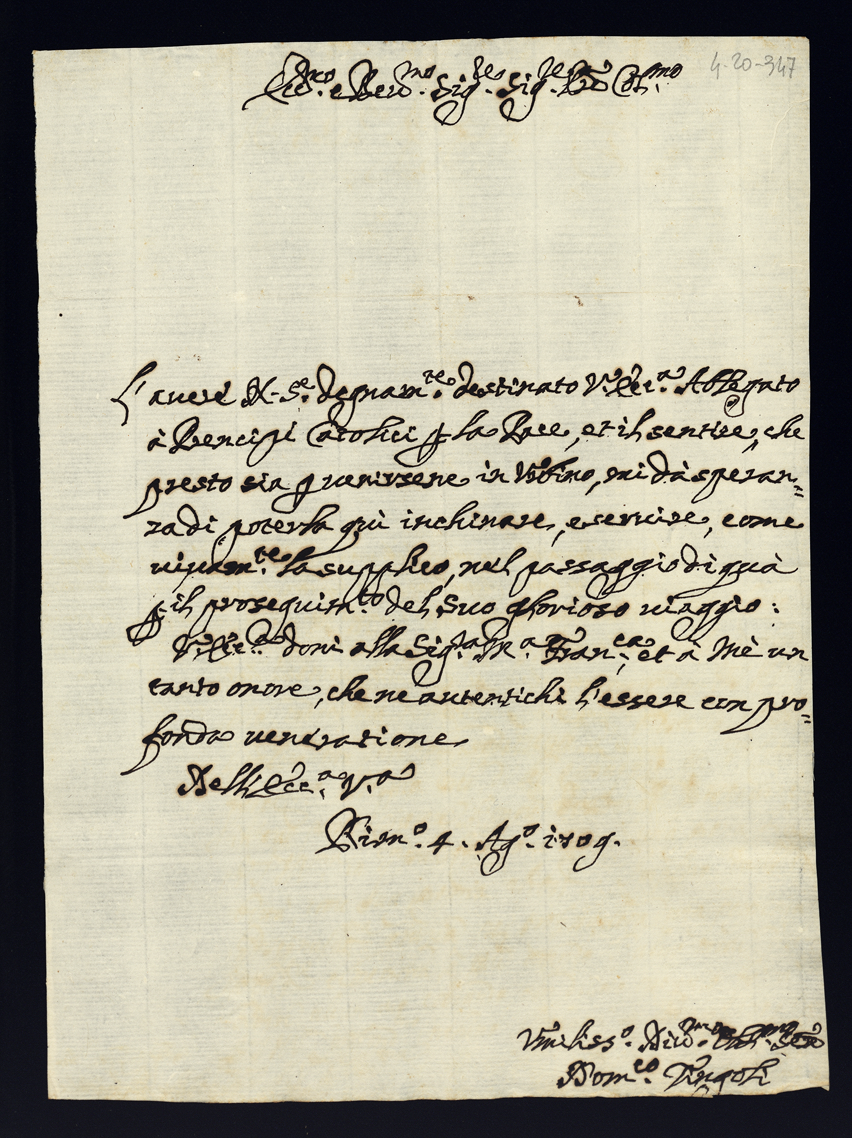 4-20-347
Ecc.mo e Rev.mo Sig.re Sig.re P.ron Col.mo
L'avere N. S.re degnam.te destinato V. Ecc.a Ablegato
à Prencipi Catolici p la Pace, et il sentire, che
presto sia p venirsene in Urbino, mi dà speran=
za di poterla quì inchinare, e servire, come
vivam.te la supplico, nel passaggio di quà
p il proseguim.to del Suo glorioso viaggio:
V. Ecc.a doni alla Sig.ra M.a Fran.ca et à Mè un
tanto onore, che ne autentichi l'essere con pro=
fonda veneratione
Dell'Ecc.a V.a
Rim.o 4. Ag.o 1709.
Umiliss.o Div.mo Obl.mo Ser.
Dom.co Tingoli